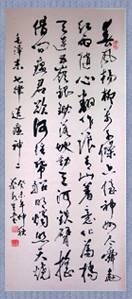 春風楊柳萬千條六億神州盡舜堯
紅雨隨心翻作浪青山着意化為橋
天連五嶺銀鋤落地動三河鐵臂搖
借問瘟君欲何往紙船明燭照天燒
毛澤東七律送瘟神二
癸未年仲秋